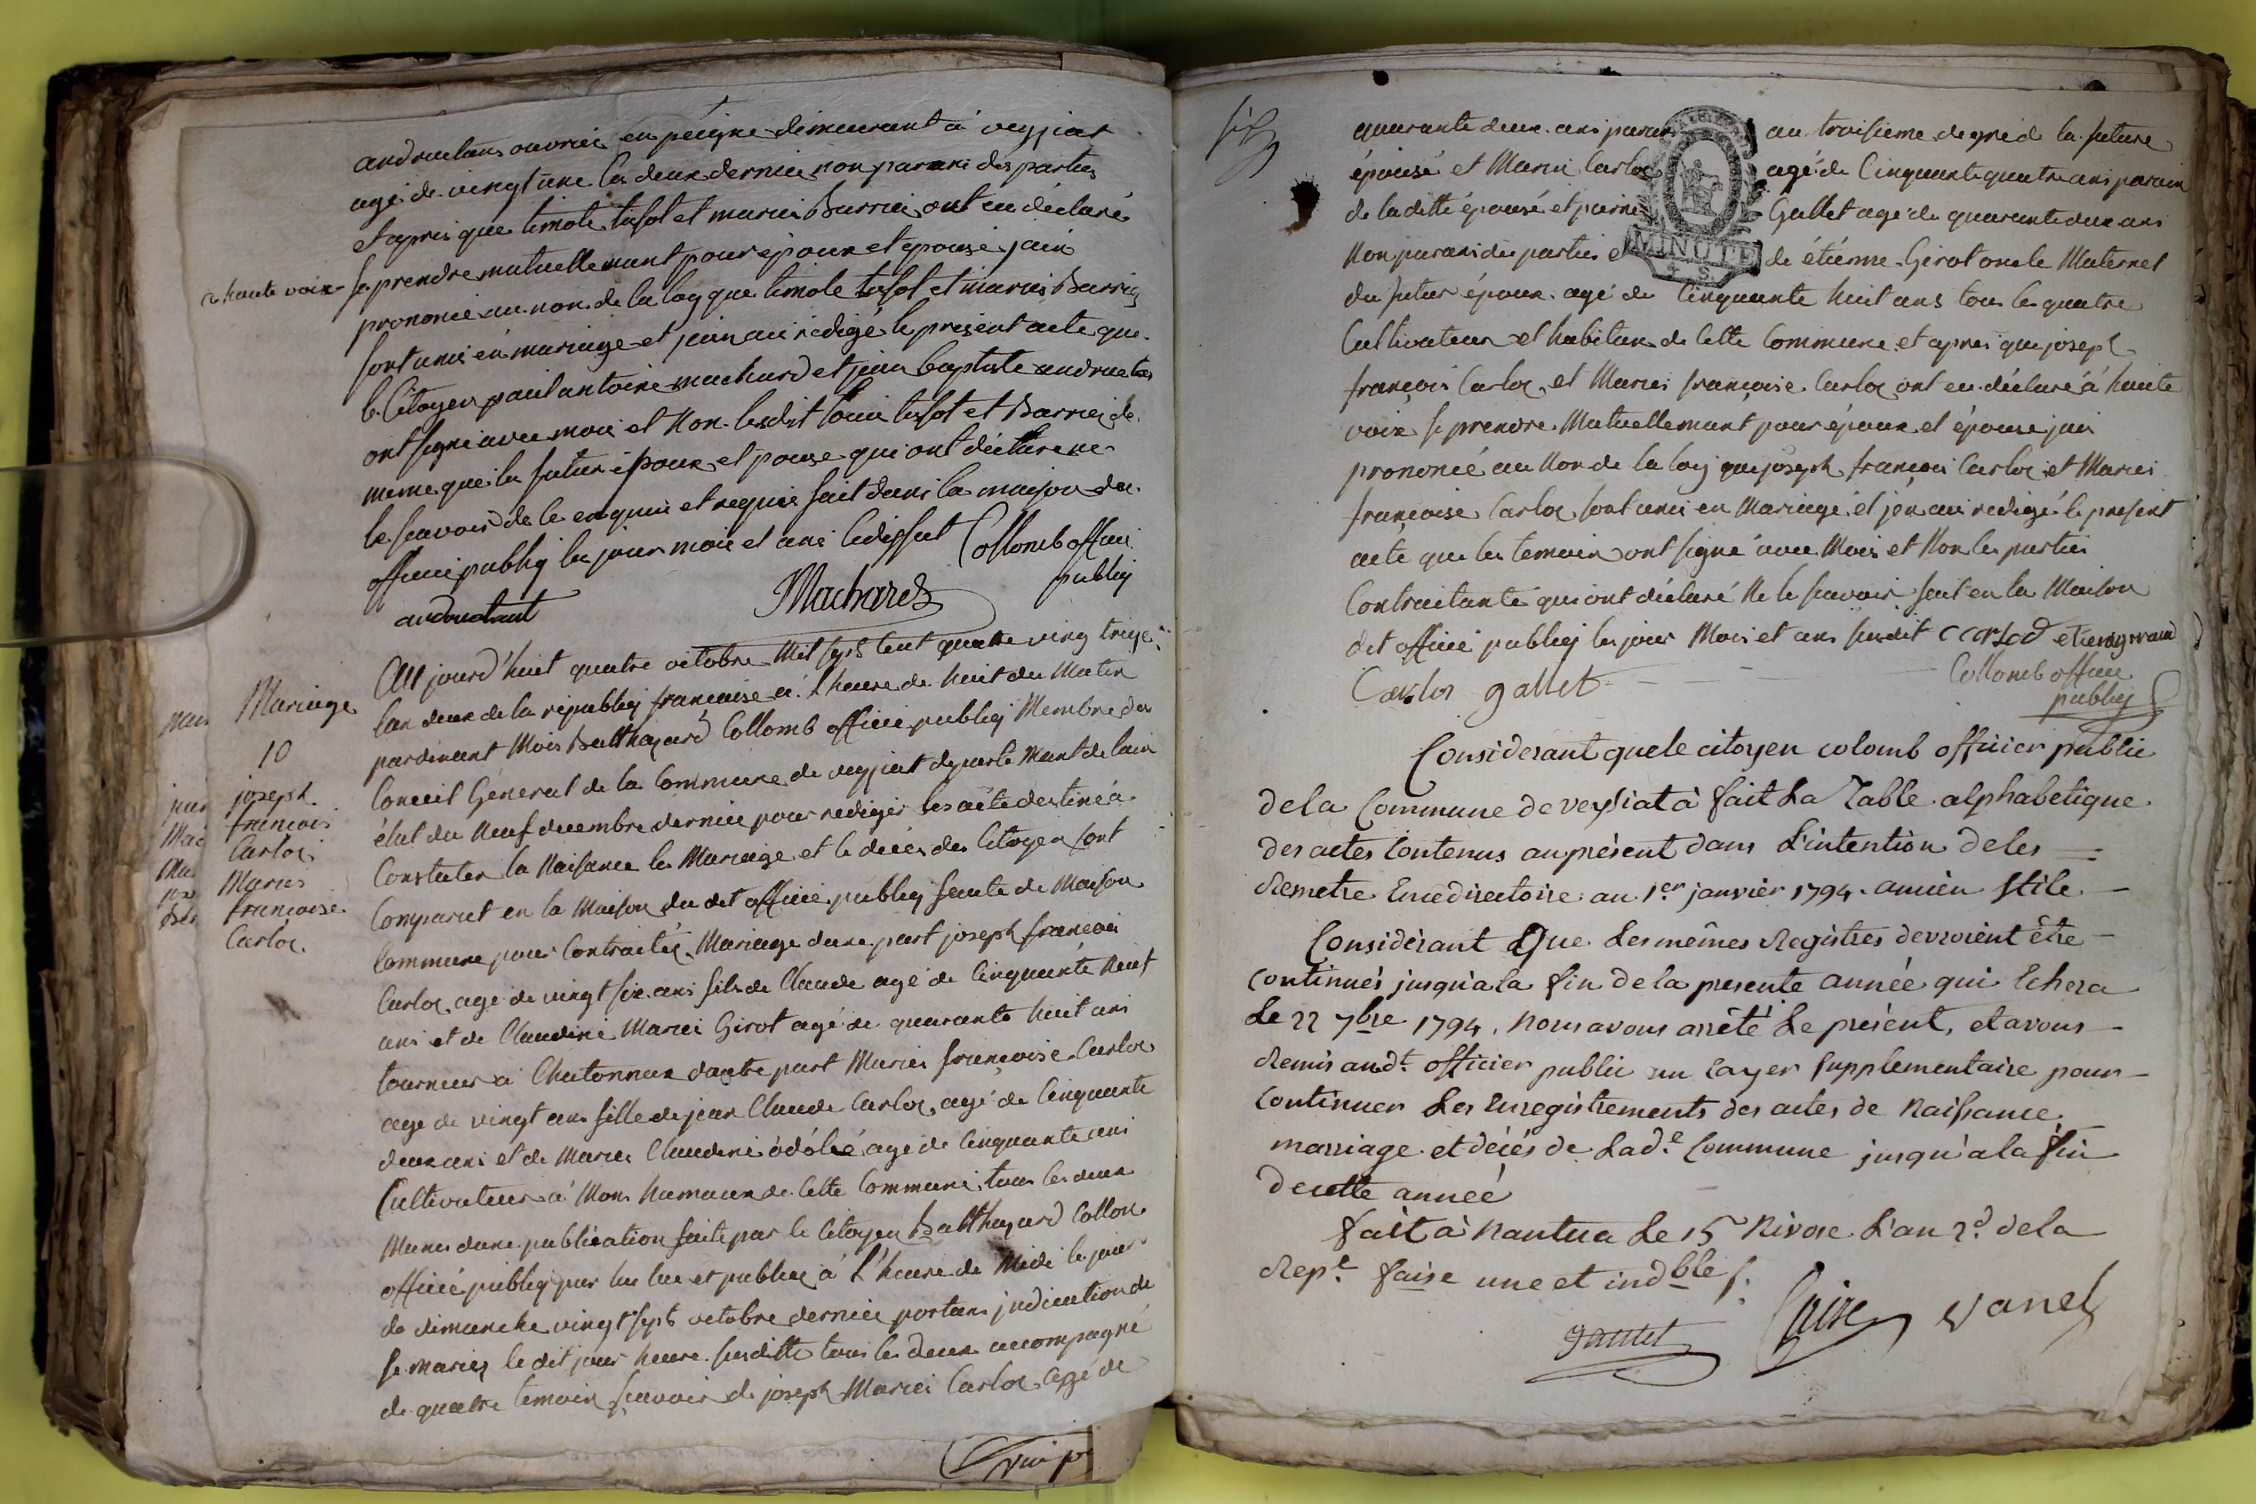 andruetans ouvrier en peigne dimeurant à veyziat
agé de vingt une les deux dernier non parans des parties
et apres que timote tissot et marie Barrier ont eu déclaré
à haute voix se prendre mutuellement pour époux et épouse jais
prononcé au nom de la loy que timole tissot et maries Barrier
sont unis en mariage et jean ais rédigé le present acte que
le Citoyen paul antoine machard et jean baptiste andruetan
ont signé avec mois et Non lesdit tissot et Barrier de
meme que les futur époux et epouse qui ont déclaré ne
le scavoir de le enquis et requis fait dans la maison du
officier publiq les jour mois et ans Collomb officier
publiq
andruetant JMachard
Mariage
10
joseph
francois
Carloz
Maries
francoise
Carloz
Au jourd'huit quatre octobre Mil sept Cent quatre ving treze
lan deux de la républiq française à l'heure de huit du Matin
pardevant Mois Balthazard Collomb officier publiq Membre du
Conceil General de la Commune de veyziat departe Mant de lain
élut du Neuf decembre dernier pour rediger les acte destiné à
Constater la Naissance les Mariage et le décès des Citoyen sont
Comparut en la Maison du dit officier publiq de Maison
Commune pour Contracter Mariage dune part joseph francois
Carloz agé de vingt six ans fils de Claude agé de Cinquante Neuf
ans et de Claudine Maries Girot agé de quarante huit ans
tourneur à Chatonnax dautre part Maries francoise Carloz
age de vingt ans fille de jean Claude Carloz agé de Cinquante
deux ans et de Maries Claudine agé de Cinquante ans
Cultivateur à Mons hamaux de Cette Commune tous les deux
Munes dune publication faite par le Citoyen Balthazard Collon
officié publiq par lui lue et publiez à l'heure de Midi le jour
de dimanche vingt sept octobre dernier portans indication de
se marier le dit jour heure susditte tous les deux accompagné
de quatre temoin scavoir de joseph Maries Carloz agé de
quarante deux ans parans au troisieme degré de la future
épousé et Marin Carloz agé de Cinquante quatre ans parain
de laditte épousé et pierre Gallet agé de quarante deux ans
Non parans des parties et de étienne Girot oncle Maternel
du futur époux agé de Cinquante huit ans tous les quatre
Cultivateur et habitans de Cette Commune et apres que joseph
françois Carloz et Maries françoise Carloz ont eu déclaré à haute
voix se prendre Mutuellement pour époux et épouse jais
prononcé au Nom de la loy que joseph francois Carloz et Maries
françoise Carloz sont unis en Mariage et jen ais redigé le present
acte que les temoin ont signé avec Mois et Non les parties
Contractante qui ont déclaré Ne le scavoir fait en la Maison
dit officié publiq les jour Mois et ans susdit
Carloz gallet Collomb officier
publiq
MINUTE
Considerant que le citoyen colomb officier public
de la Commune de veyziat à fait La Table alphabetique
des actes Contenus au présent dans L'intention de les
Remetre Directoire au 1er janvier 1794 ancien stile
Considérant Que Les mêmes Registres devroient être
continués jusqu'a la fin de la presente année qui Echera
Le 22 7bre 1794, Nous avons arrêté Le présent, et avons
Remis aud.t officier public un cayer supplementaire pour
Continuer Les Enregistrements des actes de Naissance,
marriage et décés de Lad.e Commune jusqu'a la fin
de cette année
fait à Nantua Le 15 Nivose L'an 2.d de la
Rep.e fsaise une et ind.ble
gauttet vanel